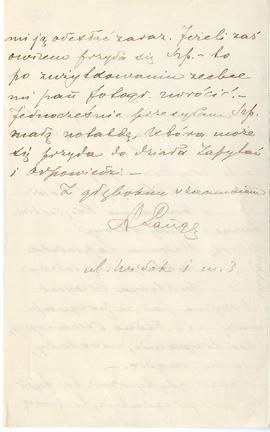 mi ją odesłać zaraz. Jeżeli zaś
owszem przyda się Szp. - to
po zużytkowaniu zechce
mi pan fotogr. zwrócić. -
Jednocześnie przesyłam Szp.
małą notatkę, która może
się przyda do działu Zapytań
i odpowiedzi. -
Z głębokim szacunkiem
A
ul. 1 m. 3.